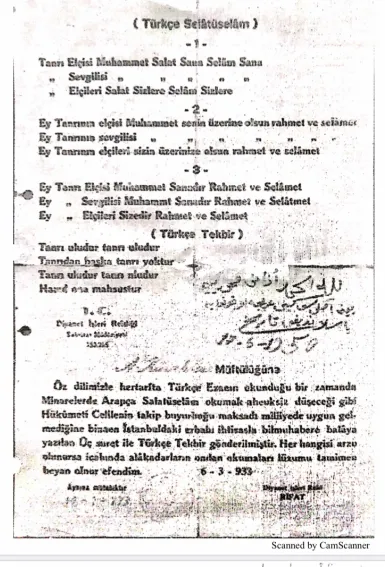 ( Türkçe Selâtüselâm )
- 1 -
Tanrı Elçisi Muhammet Salat Sana Selâm Sana
„ Sevgilisi „ „ „ „ „
„ Elçileri Salat Sizlere Selâm Sizlere
- 2 -
Ey Tanrının elçisi Muhammet senin üzerine olsun rahmet ve selâmet
Ey Tanrının sevgilisi „ „ „ „ „ „
Ey Tanrının elçileri sizin üzerinize olsun rahmet ve selâmet
- 3 -
Ey Tanrı Elçisi Muhammet Sanadır Rahmet ve Selâmet
Ey „ Sevgilisi Muhammt Sanadır Rahmet ve Selâtmet
Ey „ Elçileri Sizedir Rahmet ve Selâmet
( Türkçe Tekbir )
Tanrı uludur tanrı uludur
Tanrıdan başka tanrı yoktur
Tanrı uludur tanrı uludur
Hamd ona mahsustur
Diyanet İşleri Reisliği
Müftülüğüne
Öz dilimizle hertarafta Türkçe Ezanın okunduğu bir zamanda
Minarelerde Arapça Salatüselâm okumak ahenksiz düşeceği gibi
Hükûmeti Celilenin takip buyurduğu maksadı milliyede uygun gel-
mediğine binaen İstanbuldaki erbabı ihtisasla bilmuhabere balâya
yazılan Üç suret ile Türkçe Tekbir gönderilmiştir. Her hangisi arzu
olunursa icabında alâkadarların ondan okumaları lüzumu tamimen
beyan olnur efendim. 6 - 3 - 933
Diyanet İşleri Reisi
RİFAT
Scanned by CamScanner